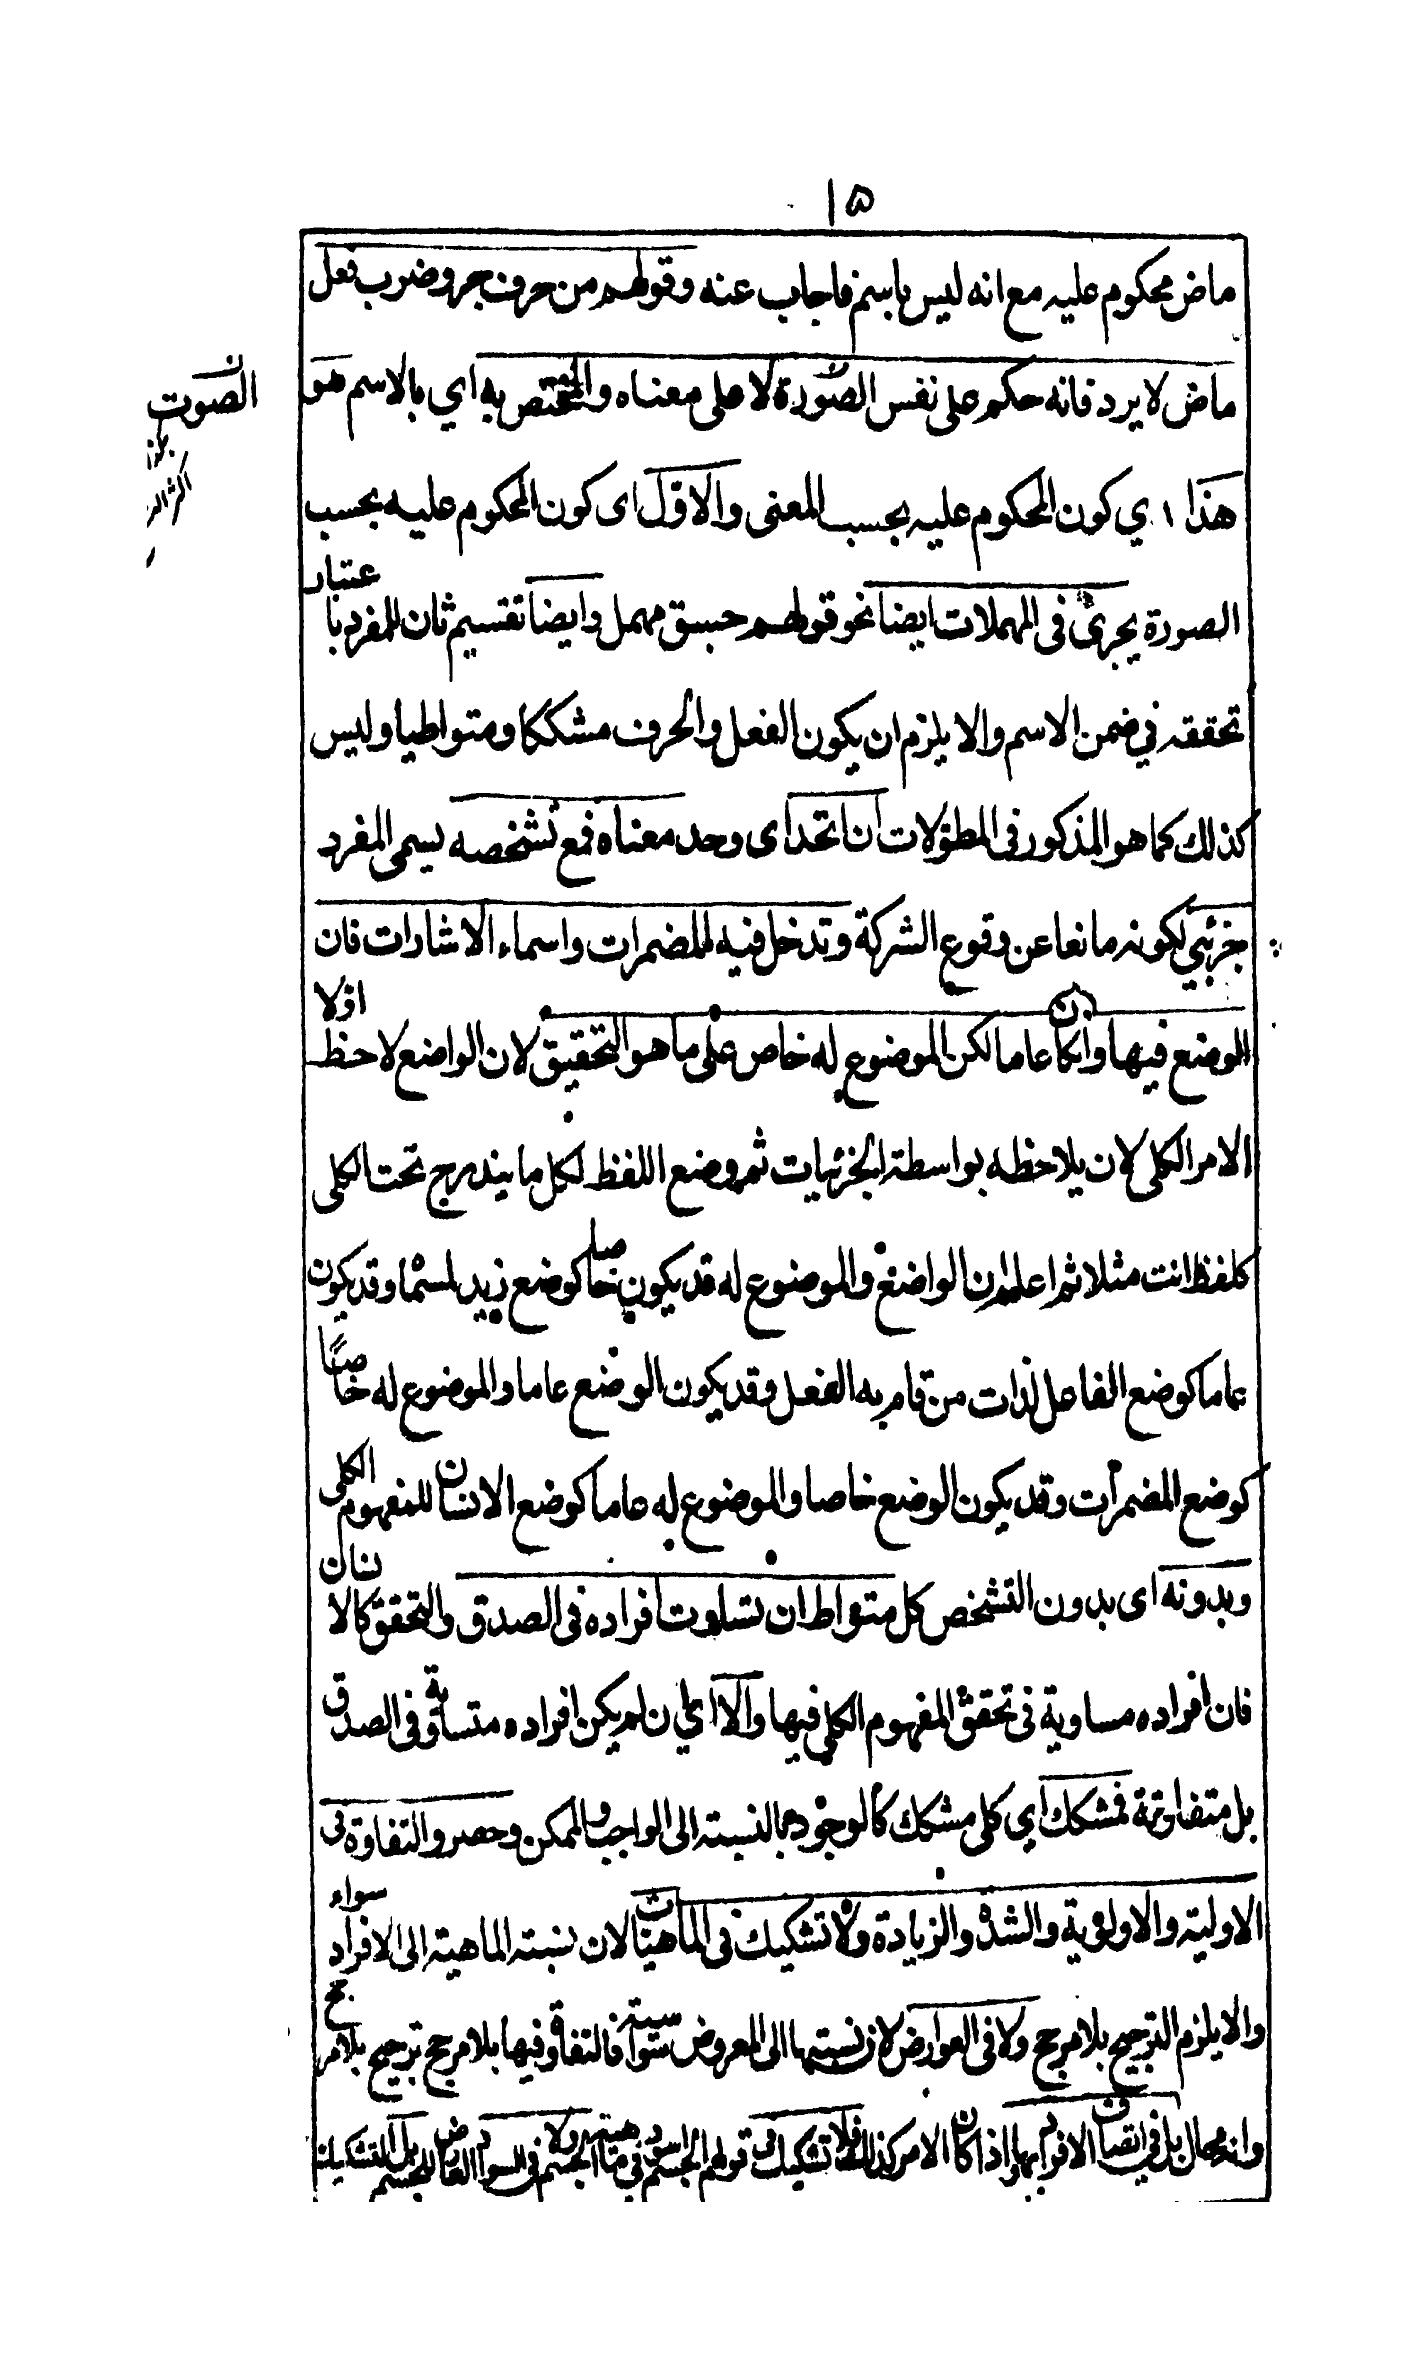 ١٥
ماض محكوم عليه مع انه ليس باسم فاجاب عنه وقولهم من حرف جر وضرب فعل
ماض لا يرد فانه حكم على نفس الصورة لا على معناه والمختص به اي بالاسم هو
الصوت
هذا اي كون المحكوم عليه بحسب المعنى والاول اى كون المحكوم عليه بحسب
الصورة يجرى فى المهملات ايضا نحو قولهم جسق مهمل وايضا تقسيم ثان للمفرد باعتبار
تحققه في ضمن الاسم والا يلزم ان يكون الفعل والحرف مشككا ومتواطيا وليس
كذلك كما هو المذكور فى المطولات ان اتحد اى وحد معناه فمع تشخصه يسمى المفرد
جزئي لكونه مانعا عن وقوع الشركة وتدخل فيه المضمرات واسماء الاشارات فان
الوضع فيها وانكان عاما لكن الموضوع له خاص على ما هو التحقيق لان الواضع لاحظ اولا
الامر الكلى لان يلاحظه بواسطة الجزئيات ثم وضع اللفظ لكل ما يندرج تحت الكلى
كلفظ انت مثلا ثم اعلم ان الواضع والموضوع له قد يكون خاصا كوضع زيد لمسما وقد يكون
عاما كوضع الفاعل لذات من قام به الفعل وقد يكون الوضع عاما والموضوع له خاصا
كوضع المضمرات وقد يكون الوضع خاصا والموضوع له عاما كوضع الانسان للمفهوم الكلى
وبدونه اى بدون التشخص كل متواط ان تساوت افراده فى الصدق والتحقق كالانسان
فان افراده مساوية فى تحقق المفهوم الكلى فيها والا اي ان لم يكن افراده متساوية فى الصدق
بل متفاوتة فمشكك اي كلى مشكك كالوجود بالنسبة الى الواجب والممكن وحصروا التفاوة فى
الاولية والاولوية والشدة والزيادة ولا تشكيك فى الماهيات لان نسبة الماهية الى الافراد سواء
والا يلزم الترجيح بلا مرجح ولا فى العوارض لان نسبتها الى المعروض سواسية فالتفاوة فيها بلا مرجح ترجيح بلا مرجح
وانه محال بل في اتصاف الافراد بها واذا كان الامر كذلك فلا تشكيك فى قولهم الجسم اسود في ماهية الجسم ولا فى السواد العارض للجسم بل التشكيك